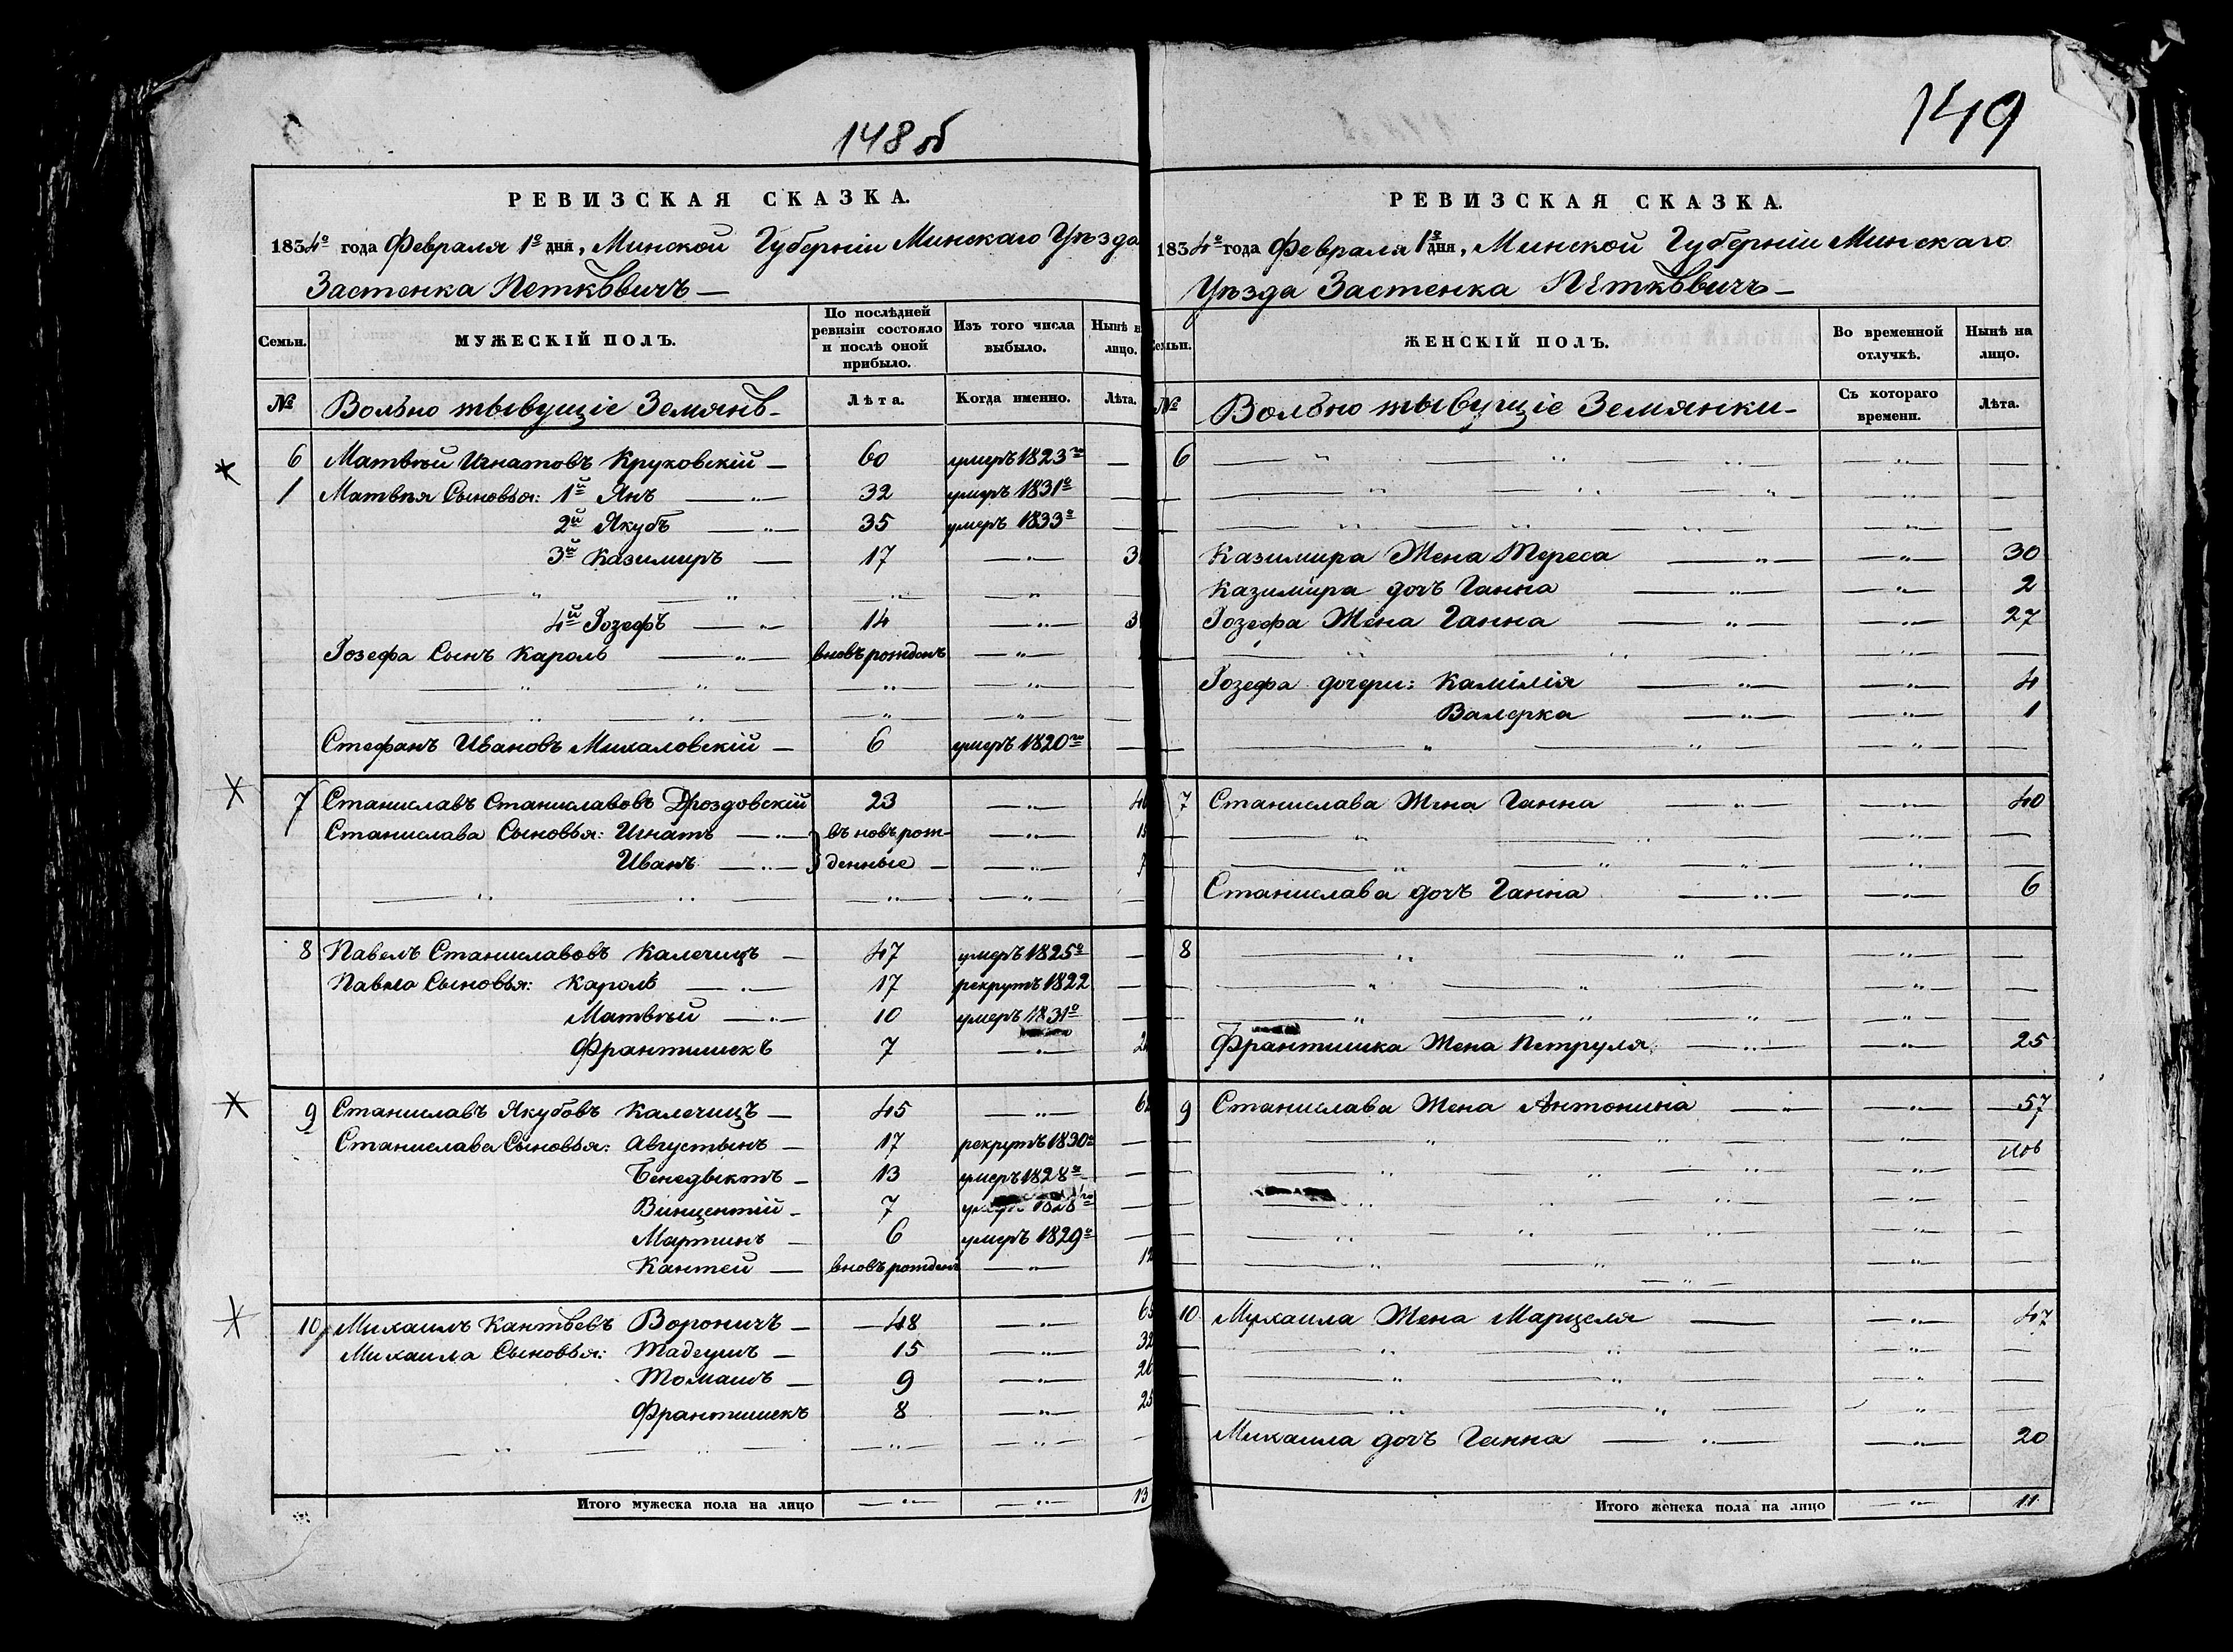 148 об
РЕВИЗСКАЯ СКАЗКА.
1834го года Февраля 1го дня, Минской Губерніи Минскаго Уѣзда
Застенка Петковичъ —
Семьи. МУЖЕСКІЙ ПОЛЪ. По послѣдней ревизіи состояло и послѣ оной прибыло. Изъ того числа выбыло. Нынѣ н лицо.
№ Вольно живущіе Земянѣ — Лѣта. Когда именно. Лѣта.
6 Матвѣй Игнатовъ Круковскій — 60 умеръ 1823го —
1 Матвѣя Сыновья: 1й Янъ — 32 умеръ 1831го —
2й Якубъ — 35 умеръ 1833го —
3й Казимиръ — 17 — 3
4й Іозефъ — 14 — 3
Іозефа Сынъ Кароль — вновь рожденъ —
Стефанъ Ивановъ Михаловскій — 6 умеръ 1820го —
7 Станиславъ Станиславовъ Дроздовскій 23 — 40
Станислава Сыновья: Игнатъ — въ новь рож- — 1
Иванъ — денные — — 7
8 Павелъ Станиславовъ Калечицъ — 47 умеръ 1825го —
Павла Сыновья: Кароль — 17 рекрутъ 1822 —
Матвѣй — 10 умеръ 1831го —
Франтишекъ 7 — 2
9 Станиславъ Якубовъ Калечицъ — 45 — 6
Станислава Сыновья: Августынъ — 17 рекрутъ 1830го —
Бенедыктъ — 13 умеръ 1828го —
Винцентій — 7 —
Мартинъ — 6 умеръ 1829го —
Кантей — вновь рожденъ — 12
10 Михаилъ Кантыевъ Вороничъ — 48 — 63
Михаила Сыновья: Тадеушъ — 15 — 32
Томашъ — 9 — 26
Франтишекъ 8 — 25
Итого мужеска пола на лицо — — 13
149
РЕВИЗСКАЯ СКАЗКА.
1834го года Февраля 1го дня, Минской Губерніи Минскаго
Уѣзда Застенка Петковичъ —
Семьи. ЖЕНСКІЙ ПОЛЪ. Во временной отлучкѣ. Нынѣ на лицо.
№ Вольно живущіе Земянки — Съ котораго времени. Лѣта.
6
Казимира Жена Тереса — — 30
Казимира дочь Ганна — — 2
Іозефа Жена Ганна — — 27
Іозефа дочери: Камилія — — 4
Валерка — — 1
7 Станислава Жена Ганна — — 40
Станислава дочь Ганна — — 6
8
Франтишка Жена Петруля — — 25
9 Станислава Жена Антонина — — 57
10 Михаила Жена Марцеля — — 47
Михаила дочь Ганна — — 20
Итого женска пола на лицо — 11